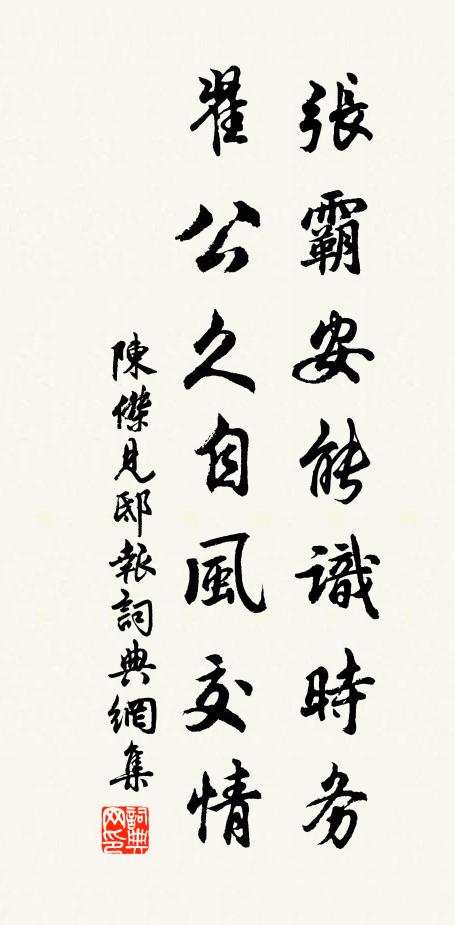 張霸安能識時务
翟公久自風交情
陳傑見邸報詞典網集
詞典网印